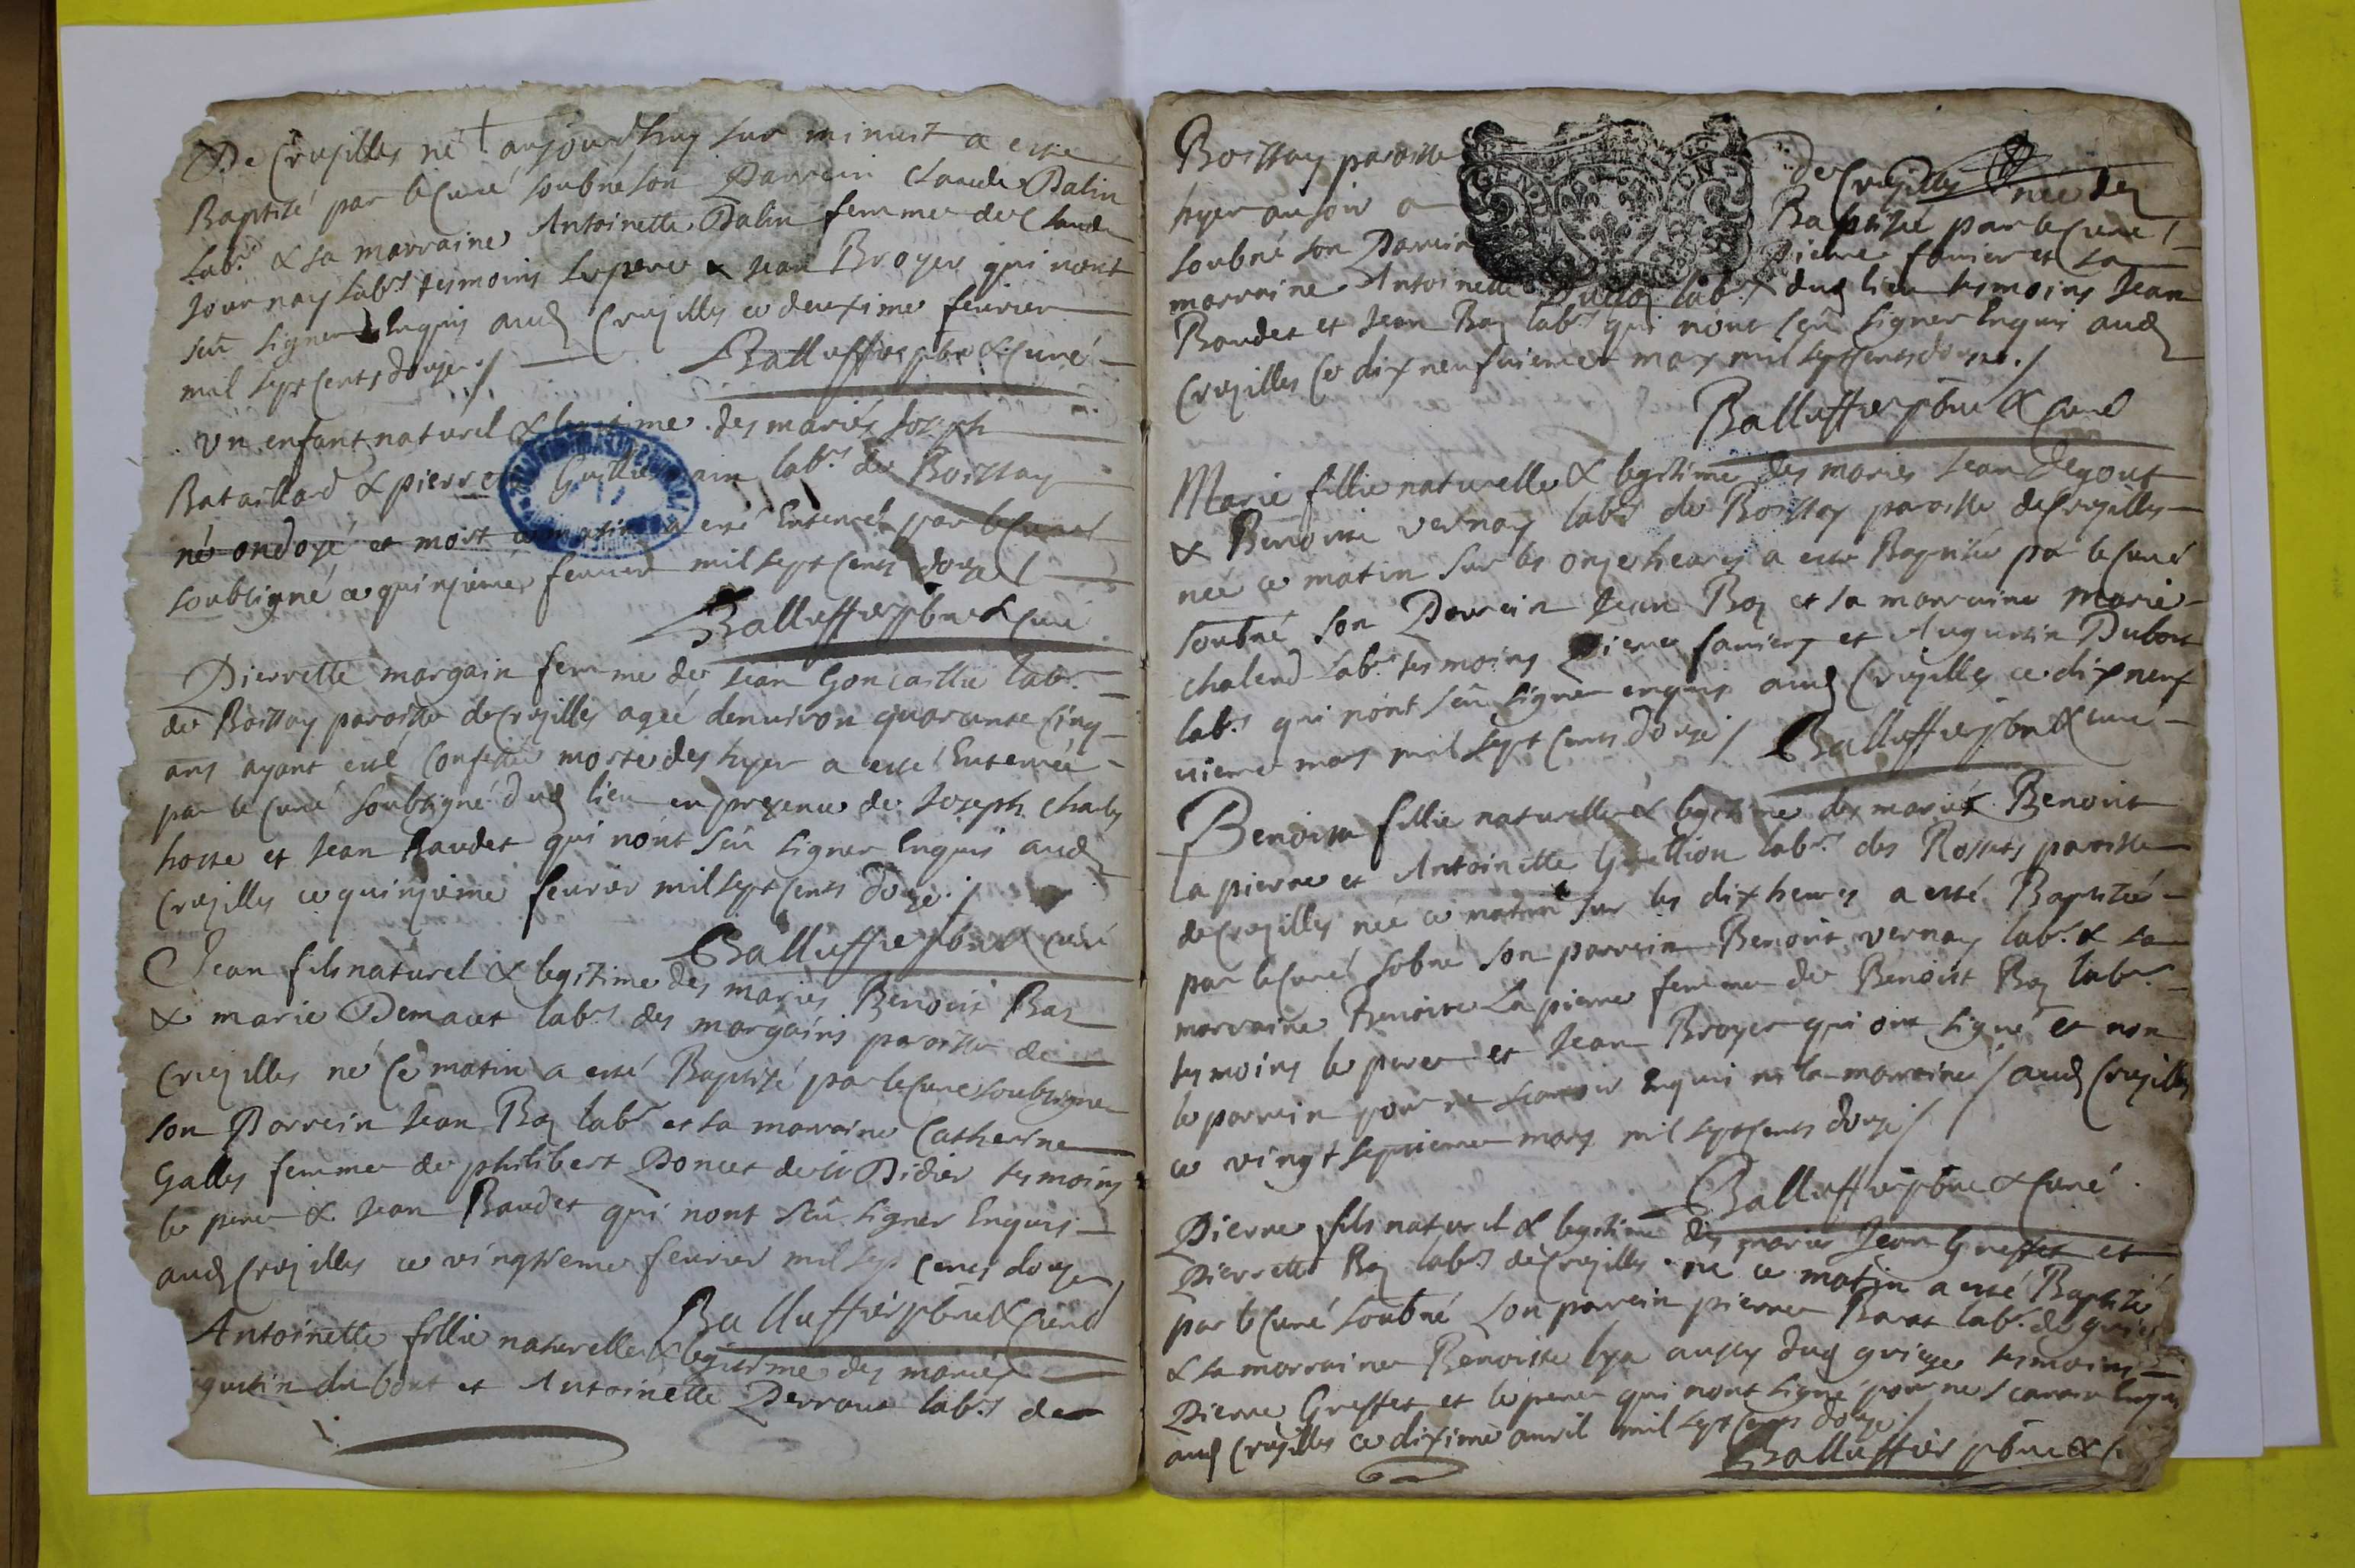 De Crusilles né aujourdhuy sur minuit a esté
Baptisé par le Curé soubné son Parrein Claude Palin
Labr. & sa marraine Antoinette Palin femme de Claude
Journay labrs tesmoins le pere & Jean Broyer qui nont
sçû signer Enquis aud Crusilles ce deuxime feurier
mil sept cents douze ./ Balluffier pbre & Curé
un enfant naturel & legitime des mariés Joseph
Bataillard & pierre labrs de Boissay
né ondoyé et mort a esté Enterré par le Curé
soubsigné ce quinzime feurier mil sept cents douze
Balluffier pbre & Curé
Pierrette margain femme de Jean Goncaillie labr.
de Boissay paroisse de Crusilles ageé denuiron quarante cinq
ans ayant esté Confessée morte des hyer a esté Enterreé
par le Curé soubsigné dud lieu en presence de Joseph Charles
hoste et Jean Baudet qui nont sçû signer Enquis aud
Crusilles ce quinzime feurier mil sept cents douze ./
Balluffier pbre & Curé
Jean fils naturel & legitime des mariés Benoist Bas
& marie Demacet labrs des margains paroisse de
Crusilles né Ce matin a esté Baptisé par le Curé soubsigne
son Parrein Jean Bas labr et sa marraine Catherine
Galles femme de philibert Poncet de st Didier tesmoins
le pere & Jean Baudet qui nont sçû signer Enquis
aud Crusilles ce vingtieme feurier mil sept cents douze
Balluffier pbre & Curé
Antoinette fillie naturelle & legitime des mariés
gustin du bost et Antoinette Perraut labrs de
Boissay paroisse de Crusilles née des
hyer au soir a Baptisée par le Curé
soubné son Parrein pierre fanier et sa
marraine Antoinette labrs dud lieu tesmoins Jean
Baudet et Jean Bas labrs qui nont sçû signer Enquis aud
Crusilles Ce dixneufuieme mars mil sept cents douze ./
Balluffier pbre & Curé
Marie fillie naturelle & legitime des mariés Jean Degout
& Benoiste vernay labrs de Boissay paroisse de Crusilles
née ce matin sur les onze heures a esté Baptisée par le Curé
soubné son Parrein Jean Bas et sa marraine marie
chaland labrs tesmoins Pierre faniers et Augustin Dubost
labrs qui nont sçû signer enquis aud Crusilles ce dixneuf
uieme mars mil sept cents douze / Balluffier pbre & Curé
Benoiste fillie naturelle & legitime des mariés Benoist
Lapierre et Antoinette Grellion labrs des Rossets paroisse
de Crusilles née ce matin sur les dix heures a esté Baptisée
par le Curé sobné son parrein Benoist vernay labr. & sa
marraine Benoiste Lapierre femme de Benoist Bas labr.
tesmoins le pere et Jean Broyer qui ont signé et non
le parrein pour ne scavoir Enquis ni la marraine / aud Crusilles
ce vingt septieme mars mil sept cents douze /
Balluffier pbre & Curé
Pierre fils naturel & legitime des mariés Jean Greffet et
Pierrette Bas labrs de Crusilles né ce matin a esté Baptisé
par le Curé soubné son parrein pierre Bavat labr. de griege
& la marraine Benoiste lya aussy dud griege tesmoins
Pierre Greffet et le pere qui nont signé pour ne scavoir Enquis
aud Crusilles ce dixime auril mil sept cents douze /
Balluffier pbre & C